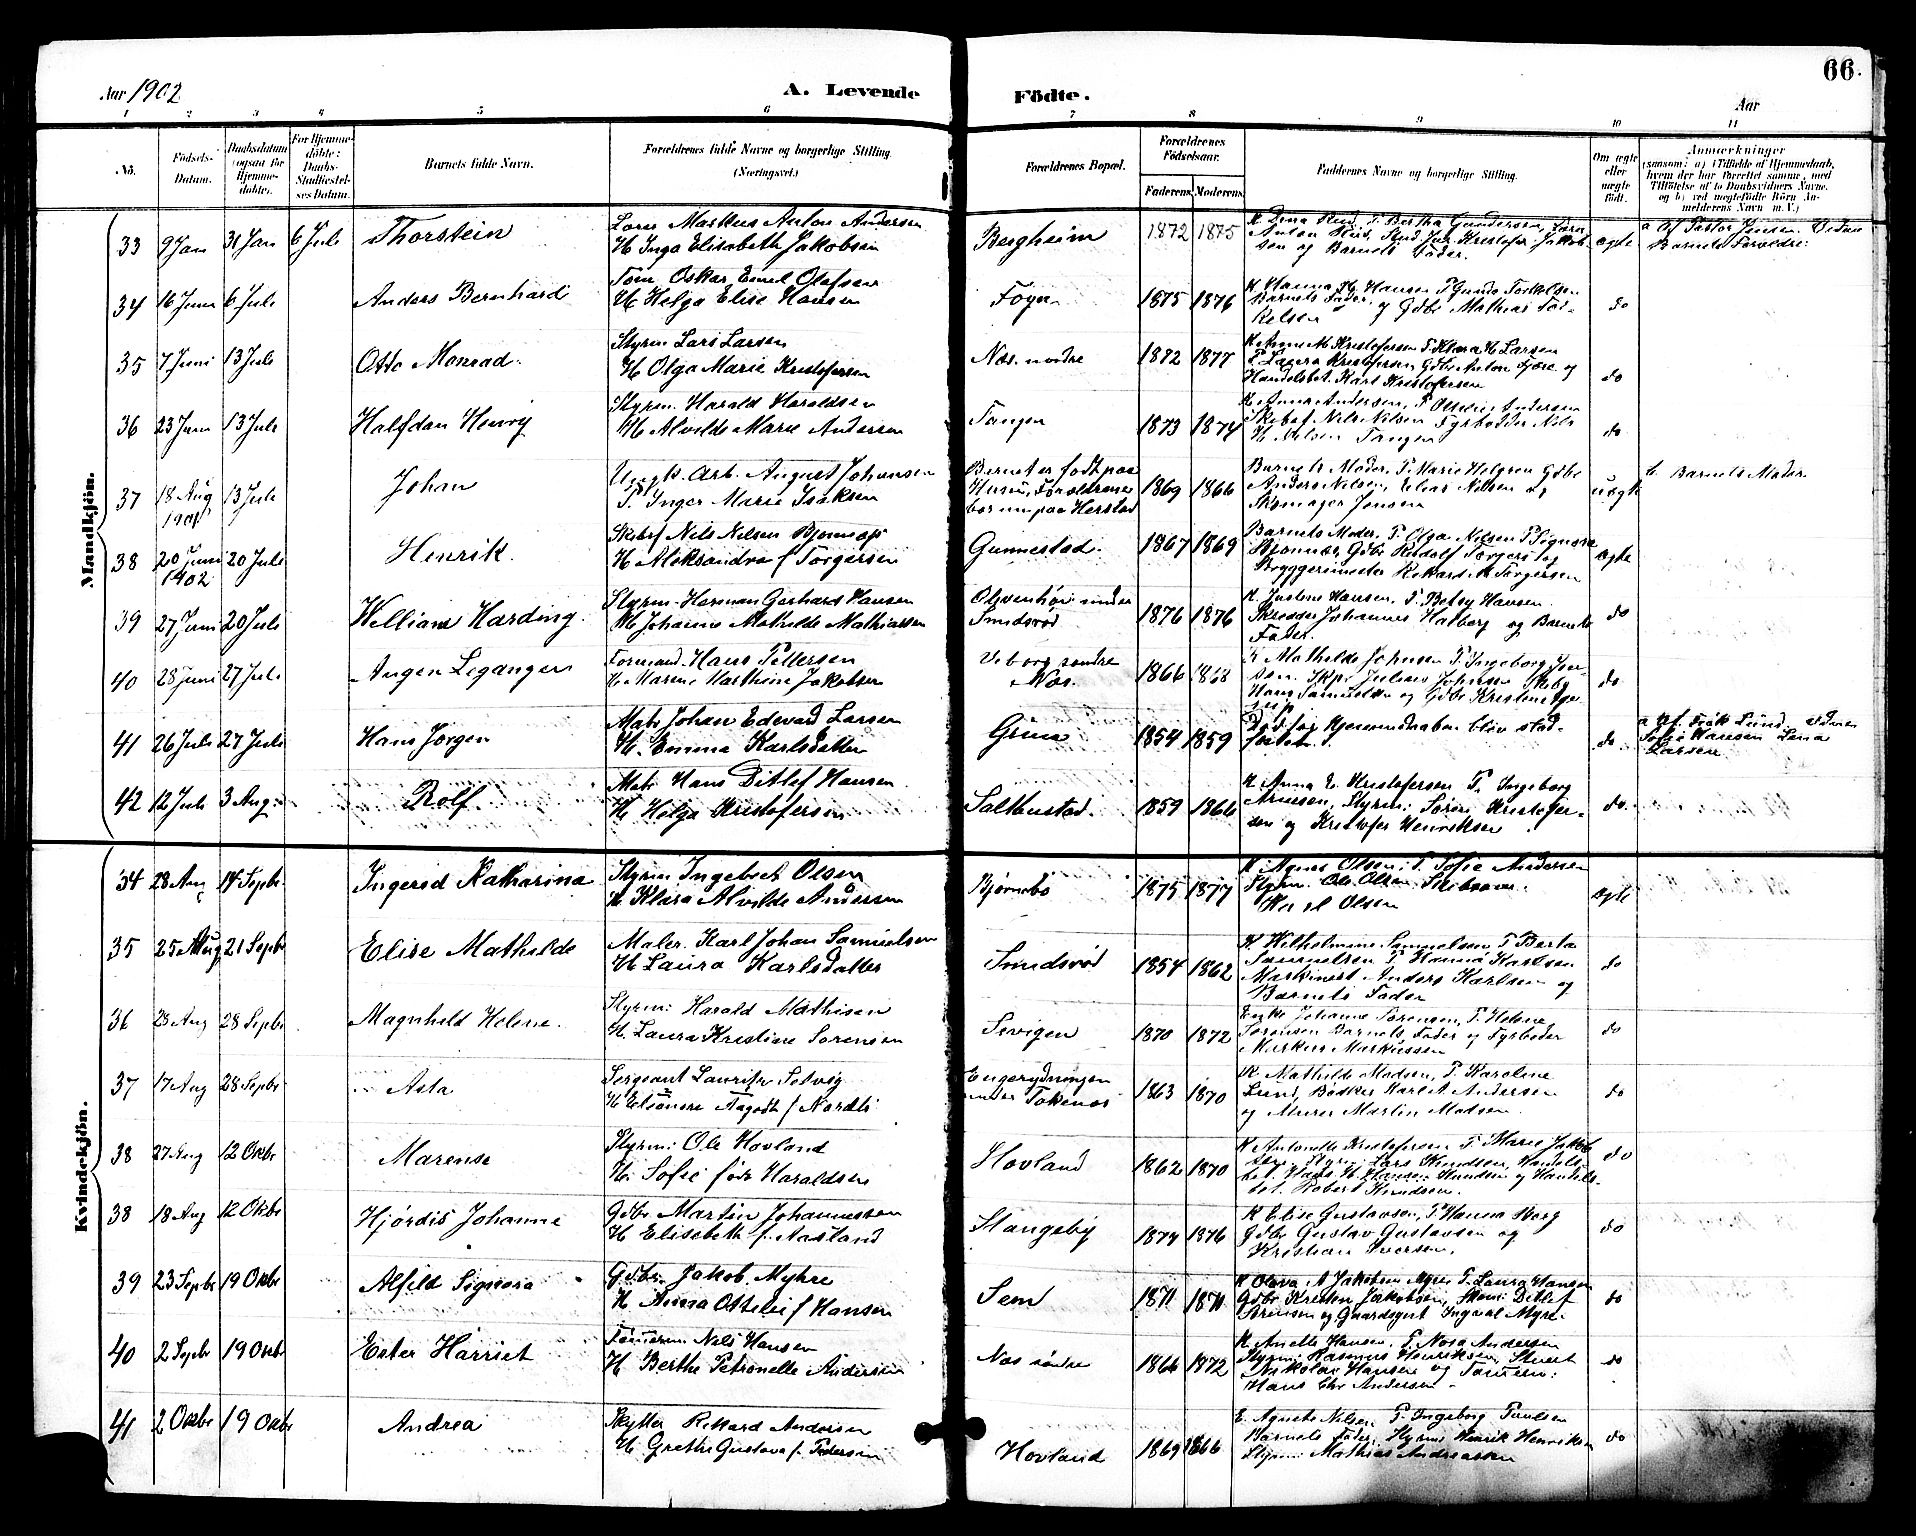 66.
Aar 1902
A. Levende Födte.
Aar
1 2 3 4 5 6 7 8 9 10 11
No.
Födsels-Datum.
Daabsdatum (ogsaa for Hjemmedöbte).
For Hjemmedöbte: Daabs-Stadfæstelses Datum.
Barnets fulde Navn.
Forældrenes fulde Navne og borgerlige Stilling. (Næringsvei.)
Forældrenes Bopæl.
Forældrenes Födselsaar.
Faderens. Moderens.
Faddernes Navne og borgerlige Stilling.
Om ægte eller uægte født.
Anmærkninger
(saasom: a) i Tilfælde af Hjemmedaab,
hvem der har forrettet samme, med
Tilføielse af to Daabsvidners Navne,
og b) ved uægtefödte Börn Anmelderens Navn m. V.)
Mandkjön.
33 9 Jan 31 Jan 6 Juli Thorstein
Lærer Markus Anton Andersen
H Inga Elisabeth Jakobsen
Bergheim 1872 1875
og Barnets Fader.
ægte
a Af Pastor Jensen
Barnets Forældre
34 16 Juni 6 Juli Anders Bernhard
Tøm Oskar Emil Olafsen
H Helga Elise Hansen
Føyn 1875 1876
K Hanna Hansen
Barnets Fader og Gdbr Mathias
do
35 7 Juni 13 Juli Otto Monrad.
Styrm Lars Larsen
H Olga Marie Kristofersen
Næs nordre 1872 1877
Kristofersen T. Klara H Larsen
T. Laura Kristofersen, Gdbr Anton Fjære og
Handelsbet. Karl Kristofersen
do
36 23 Juni 13 Juli Halfdan Henry
Styrm. Harald Haraldsen
H Alvilde Marie Andersen
Tangen 1873 1874
K Anna Andersen, Andersen
Nils Nilsen Fyrbøder Nils
Nilsen Tangen
do
37 18 Aug 1901 13 Juli Johan
Ungk. Arb. August Johansen
P. Inger Marie Isaksen
Barnet er født paa
Forældrene
bor nu paa Herstad
1869 1866
Barnets Moder, P. Marie Helgsen Gdbr
Anders Nilsen, Elias Nilsen og
Skomager Jensen
uægte
b Barnets Moder
38 20 Juni 1902 20 Juli Henrik.
Skibsf Nils Nilsen Bjønnæs
H Aleksandra f Torgersen
Gunnestad. 1867 1869
Barnets Moder, P. Olga Nilsen P Signora
Bjønnæs, Gdbr Rudolf Torgers og
Bryggerimester Rikard M Torgersen
ægte
39 27 Juni 20 Juli William Harding.
Styrm. Herman Gerhard Hansen
H Johanne Mathilde Mathiassen
under
Smidsrød
1876 1876
K Justine Hansen, P. Betsy Hansen
Skrædder Johannes Hatberg og Barnets
Fader.
do
40 28 Juni 27 Juli Angen Leganger
Formand Hans Pettersen
H Maren Marthine Jakobsen
Viborg søndre
Næs.
1866 1868
K Mathilde Johnsen P. Ingeborg
Julius Johnsen
Hans Samuelsen og Gdbr Kristen
do
41 26 Juli 27 Juli Hans Jørgen
Matr Johan Edevard Larsen
H. Emma Karlsdatter
Grina 1854 1859
Død før Hjemmedaaben blev stadfæstet.
do
a Af Frøk Lund
Sofie Hansen Lena
Larsen
42 12 Juli 3 Aug. Rolf.
Matr Hans Ditlef Hansen
H Helga Kristofersen
Salthustad. 1859 1866
K Anna E Kristofersen P. Ingeborg
Arnesen, Styrm: Søren Kristofersen og Kristofer Henriksen
do.
Kvindekjön.
34 28 Aug 14 Septbr. Ingerid Katharina
Styrm Ingebret Olsen
H Klara Alvilde Andersen
Bjørnebo 1875 1877
K. Agnes Olsen, P. Sofie Andersen
Styrm Ole Olsen
Karl Olsen
ægte
35 25 Aug 21 Septbr Elise Mathilde
Maler. Karl Johan Samuelsen
H Laura Karlsdatter
Smidsrød 1854 1862
K. Vilhelmine Samuelsen P. Berta
Samuelsen P Hanna Karlsen
Maskinist Anders Karlsen og
Barnets Fader
do
36 23 Aug 28 Septbr Magnhild Helene.
Styrm: Harald Mathisen
H. Laura Kristine Sørensen
Sevigen 1870 1872
Enke Johanne Sørensen, P. Helene
Sørensen Barnets Fader og Fyrbøder
Markus Markussen
do
37 17 Aug 28 Septbr Asta
Sergeant Lauritz Solvig
H Elionore Aagodt f Nordli
Engerydningen
under Tokenæs
1863 1870
K Mathilde Madsen, P. Karoline
Lund, Bødker Karl A. Andersen
og Murer Martin Madsen.
do
38 27 Aug 12 Oktbr Marense
Styrm: Ole Hovland
H. Sofie født Haraldsen
Hovland 1862 1870
K Antonette Kristofersen P Marie Jakobsen, Styrm: Lars Knudsen, Handelsbet. Hans H. Hansen Knudsen og Handelsbet. Robert Knudsen.
do
38 18 Aug 12 Oktbr Hjørdis Johanne
Gdbr Martin Johannessen
H Elisabeth f. Aasland
Stangeby 1874 1876
K Elise Gustavsen, P. Hanna Borg
Gdbr Gustav Gustavsen og
Kristian Iversen.
do
39 23 Septbr 19 Oktbr Alfild Signora
Gdbr. Jakob Myhre
H Anna Ottilei f Hansen
Sem 1871 1871
K Olava A Jakobsen Myre P. Laura Hansen
Gdbr Kristen Jakobsen, Ditlef
Sørensen og Gaardsgut Ingval Myre.
do
40 2 Septbr 19 Oktbr Ester Harriet
Tømrerm: Nils Hansen
H Berthe Petronelle Andersen
Næs søndre 1866 1872
K Anette Hansen, P. Nora Andersen
Styrm: Rasmus Henriksen, Stuert
Nikolai Hansen og Tømrerm:
Hans Chr Andersen.
do
41 2 Oktbr 19 Oktbr Andrea
Skytter Rikard Andersen
H Grethe Gustava f. Pedersen
Hovland 1869 1866
E. Agnete Nilsen, P. Ingeborg Paulsen
Barnets Fader, Styrm Henrik Henriksen
Styrm: Mathias Andreassen
do